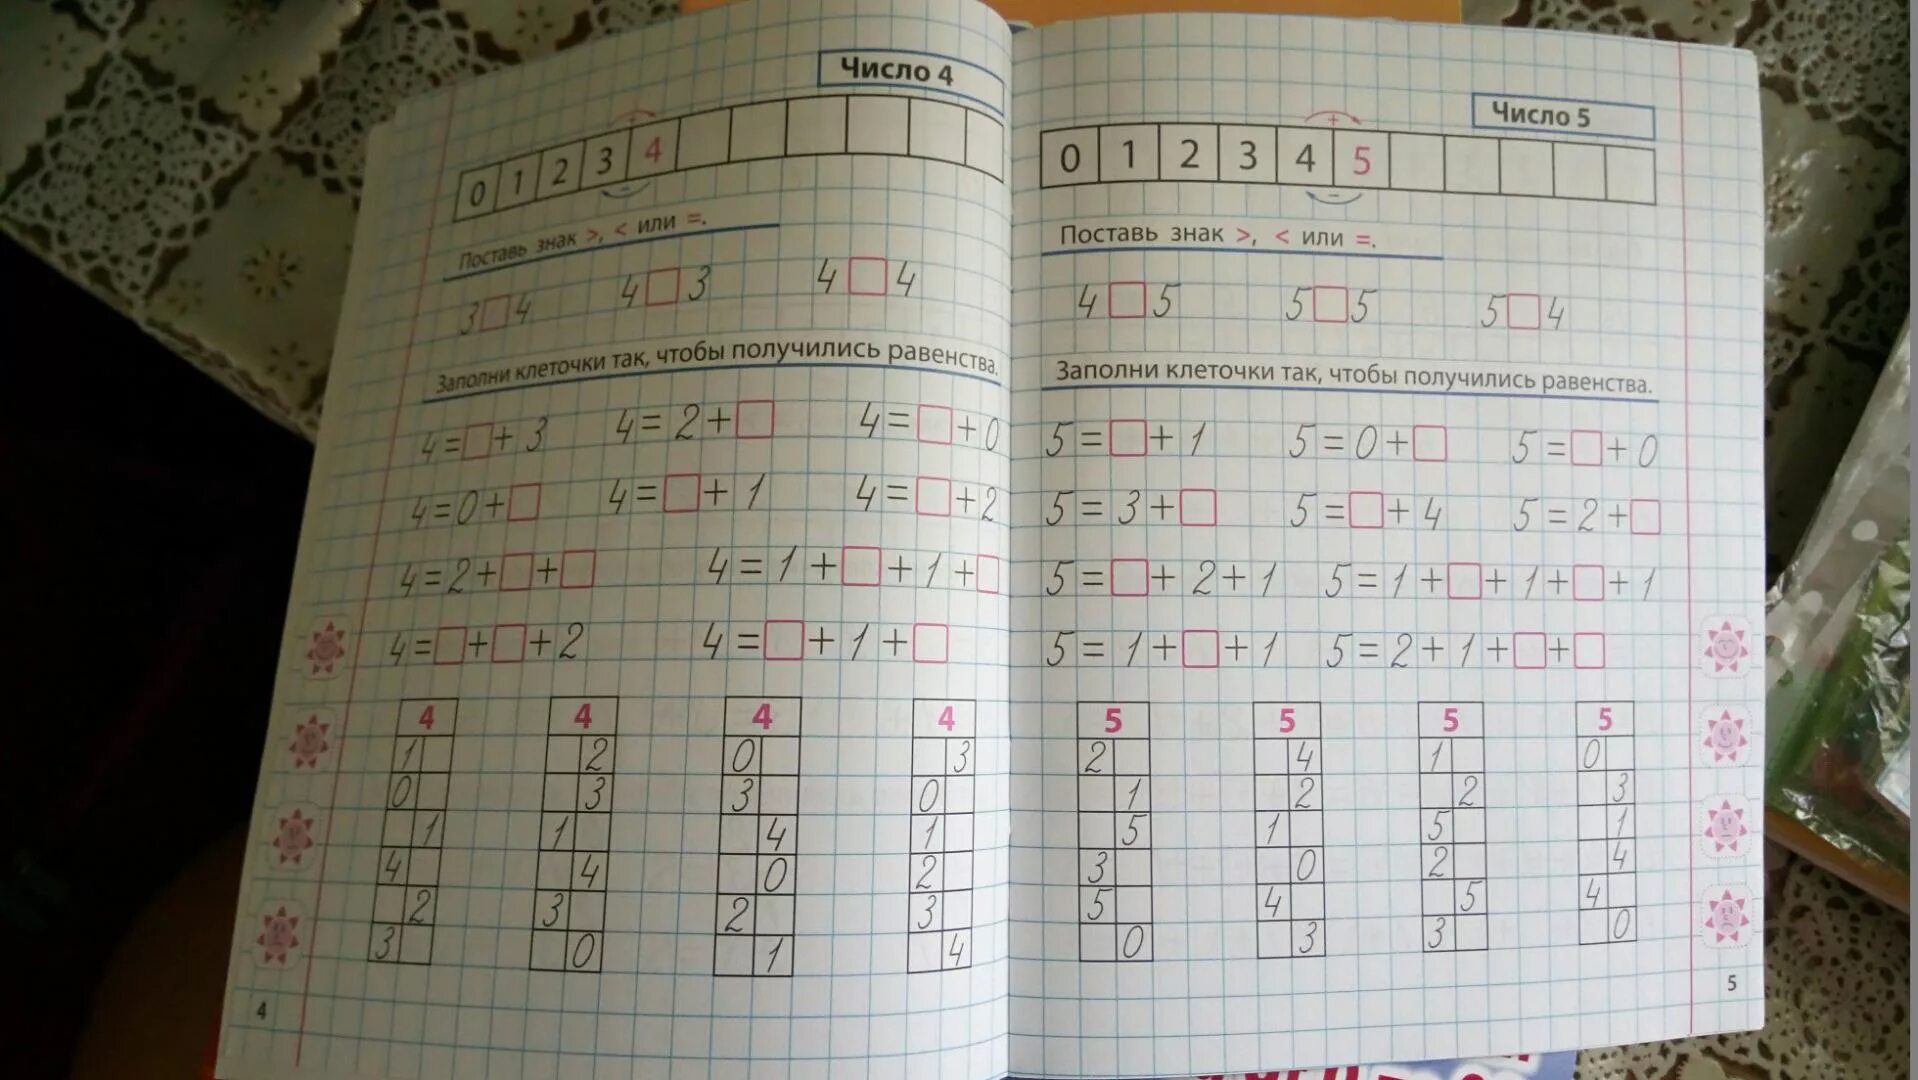 Число 4
+
0 1 2 3 4
−
Поставь знак >, < или =.
3□4 4□3 4□4
Заполни клеточки так, чтобы получились равенства.
4=□+3 4=2+□ 4=□+0
4=0+□ 4=□+1 4=□+2
4=2+□+□ 4=1+□+1+□
4=□+□+2 4=□+1+□
4 4 4 4
1 2 0 3
0 3 3 0
1 1 4 1
4 4 0 2
2 3 2 3
3 0 1 4
4
Число 5
+
0 1 2 3 4 5
−
Поставь знак >, < или =.
4□5 5□5 5□4
Заполни клеточки так, чтобы получились равенства.
5=□+1 5=0+□ 5=□+0
5=3+□ 5=□+4 5=2+□
5=□+2+1 5=1+□+1+□+1
5=1+□+1 5=2+1+□+□
5 5 5 5
2 4 1 0
1 2 2 3
5 1 5 1
3 0 2 4
5 4 5 4
0 3 3 0
5